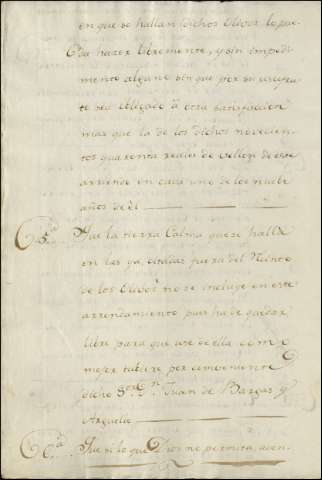 en que se hallan dichos Olivos lo pue-
da hazer libremente, y sin impedi-
mento alguno sin que por su
sea obligado â otra satisfaccion
mas que la de los dichos novecien-
tos quarenta reales de vellon de este
arriendo en cada uno de los nuebe
años de èl
5ª Que la tierra Calma que se halla
en las ya citadas fuera del
de los Olivos no se incluye en este
arrendamiento pues ha de quedar
libre para que use de ella como
mejor tubiere por combeniente
dicho Sor Dn Juan de Bargas y
6ª Que si lo que Dios no permita, acon-